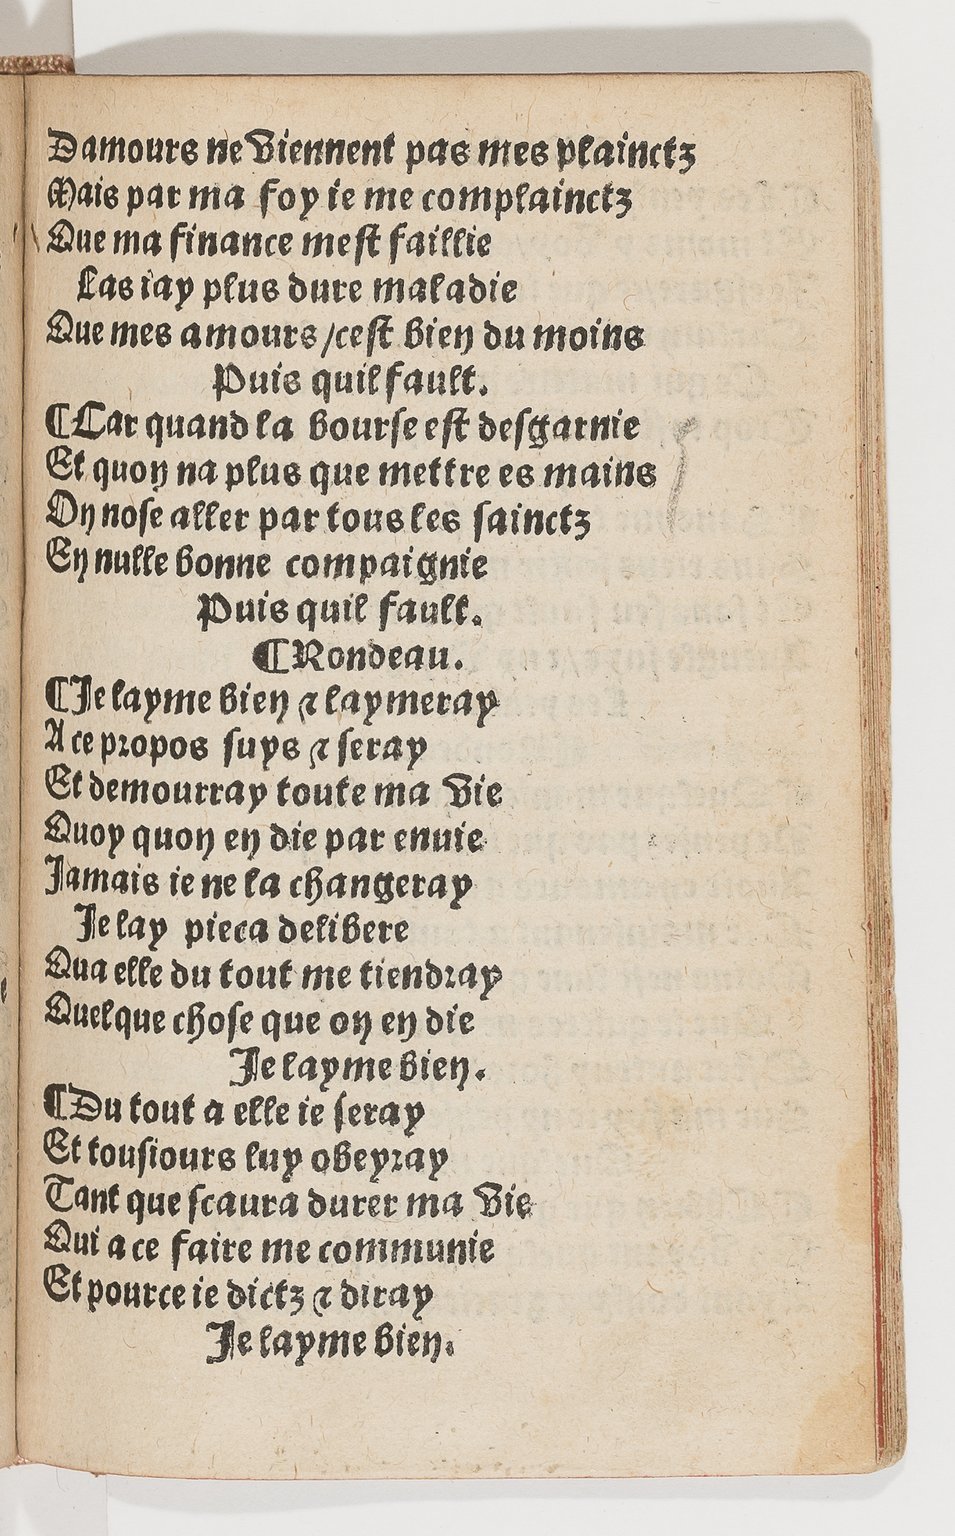 Damours ne viennent pas mes plainctz
Mais par ma foy ie me complainctz
Que ma finance mest faillie
Las iay plus dure maladie
Que mes amours /cest bien du moins
Puis quil fault.
¶Car quand la bourse est desgarnie
Et quon na plus que mettre es mains
On nose aller par tous les sainctz
En nulle bonne compaignie
Puis quil fault.
¶Rondeau.
¶Je layme bien ⁊ laymeray
A ce propos suys ⁊ seray
Et demourray toute ma vie
Quoy quon en die par enuie
Jamais ie ne la changeray
Je lay pieca delibere
Qua elle du tout me tiendray
Quelque chose que on en die
Je layme bien.
¶Du tout a elle ie seray
Et tousiours luy obeyray
Tant que scaura durer ma vie
Qui a ce faire me communie
Et pource ie dictz ⁊ diray
Je layme bien.